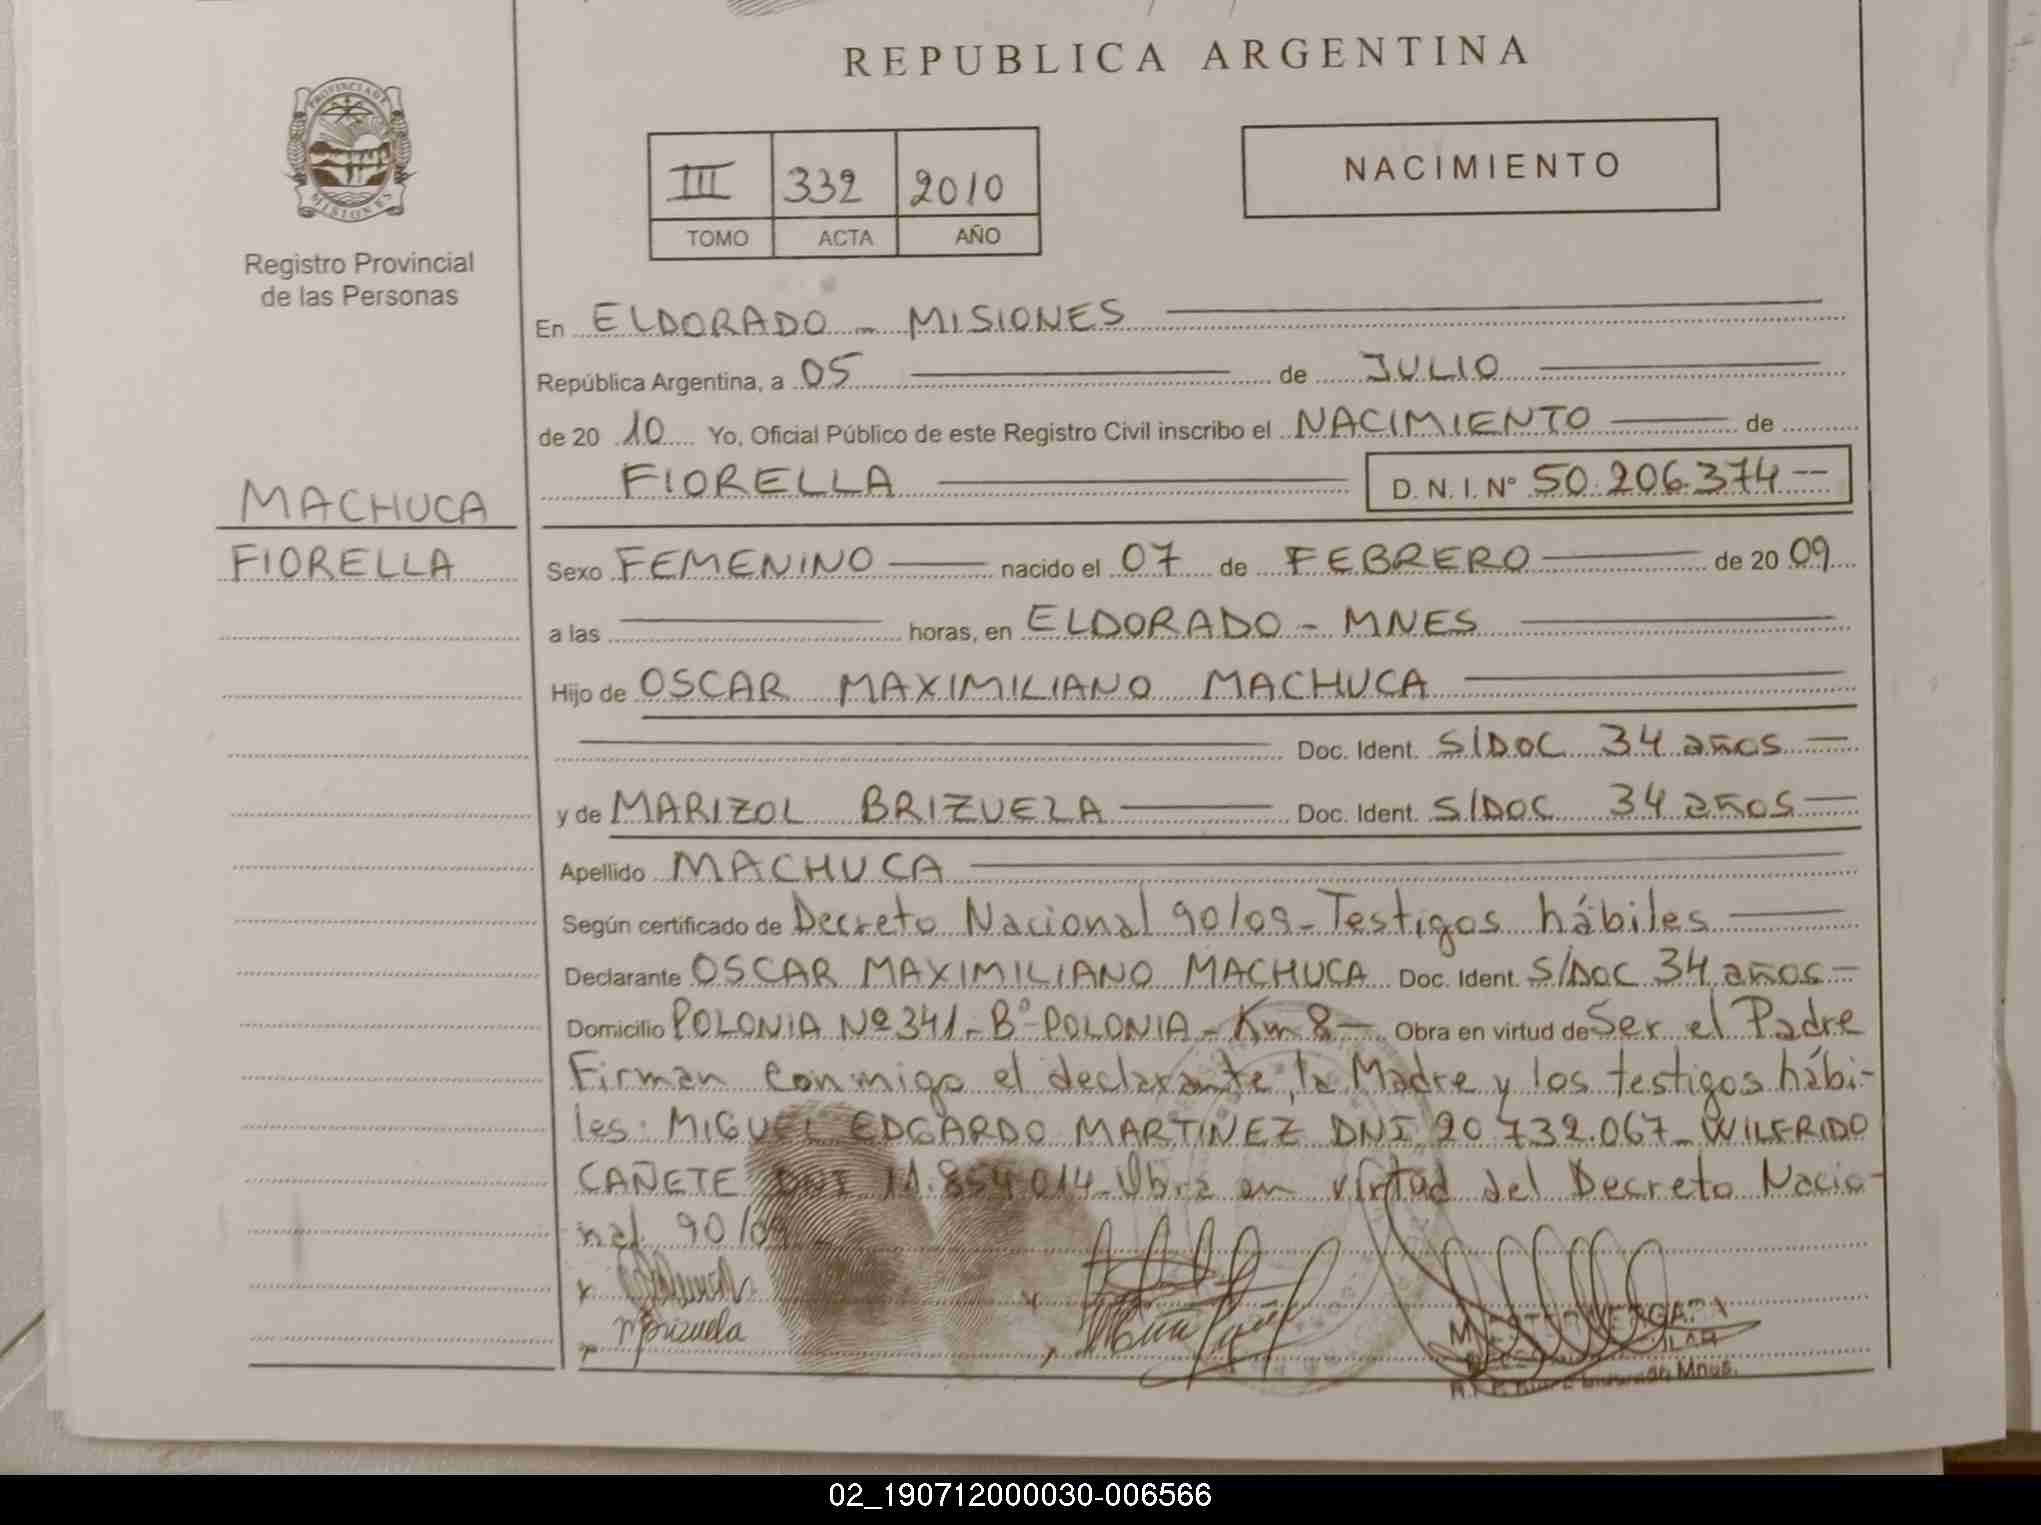 REPUBLICA ARGENTINA
PROVINCIA DE
MISIONES
Registro Provincial
de las Personas
III 332 2010
TOMO ACTA AÑO
NACIMIENTO
En ELDORADO - MISIONES
República Argentina, a 05 de JULIO
de 20 10 Yo, Oficial Público de este Registro Civil inscribo el NACIMIENTO de
FIORELLA D. N. I. Nº 50.206.374 --
MACHUCA
FIORELLA
Sexo FEMENINO nacido el 07 de FEBRERO de 20 09
a las horas, en ELDORADO - MNES
Hijo de OSCAR MAXIMILIANO MACHUCA
Doc. Ident. S/DOC 34 años
y de MARIZOL BRIZUELA Doc. Ident. S/DOC 34 años
Apellido MACHUCA
Según certificado de Decreto Nacional 90/09 - Testigos hábiles
Declarante OSCAR MAXIMILIANO MACHUCA Doc. Ident. S/DOC 34 años -
Domicilio POLONIA Nº 341 - Bº POLONIA - Km 8 - Obra en virtud de Ser el Padre
Firman conmigo el declarante, la Madre y los testigos hábi-
les: MIGUEL EDGARDO MARTINEZ DNI 20.732.067 - WILFRIDO
CAÑETE DNI 11.854.014 - Obra en virtud del Decreto Nacio-
nal 90/09
Mnes.
02_190712000030-006566